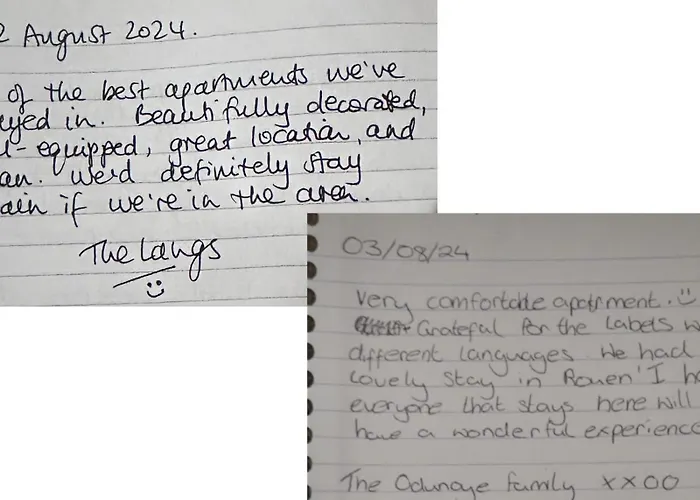 2 August 2024.
of the best apartments we've
yed in. Beautifully decorated,
l-equipped, great location, and
an. We'd definitely stay
ain if we're in the area.
The Langs
03/08/24
Very comfortable apartment.
Grateful for the Labels w
different languages We had
Lovely stay in Rouen' I ho
everyone that stays here will
have a wonderful experience
The Odunaye family xxoo